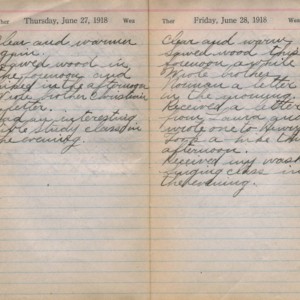 Ther Thursday, June 27, 1918 Wea
Clear and warmer
again.
Sawed wood in
the forenoon and
in the afternoon
Wrote brother
letter.
Had an interesting
Bible study class in
the evening.
Ther Friday, June 28, 1918 Wea
Clear and warm.
Sawed wood this
forenoon awhile
Wrote brother
Norman a letter
in the morning.
Received a letter
from Laura and
wrote one to
Took a hike this
afternoon.
Received my wash
Singing class in
the evening.